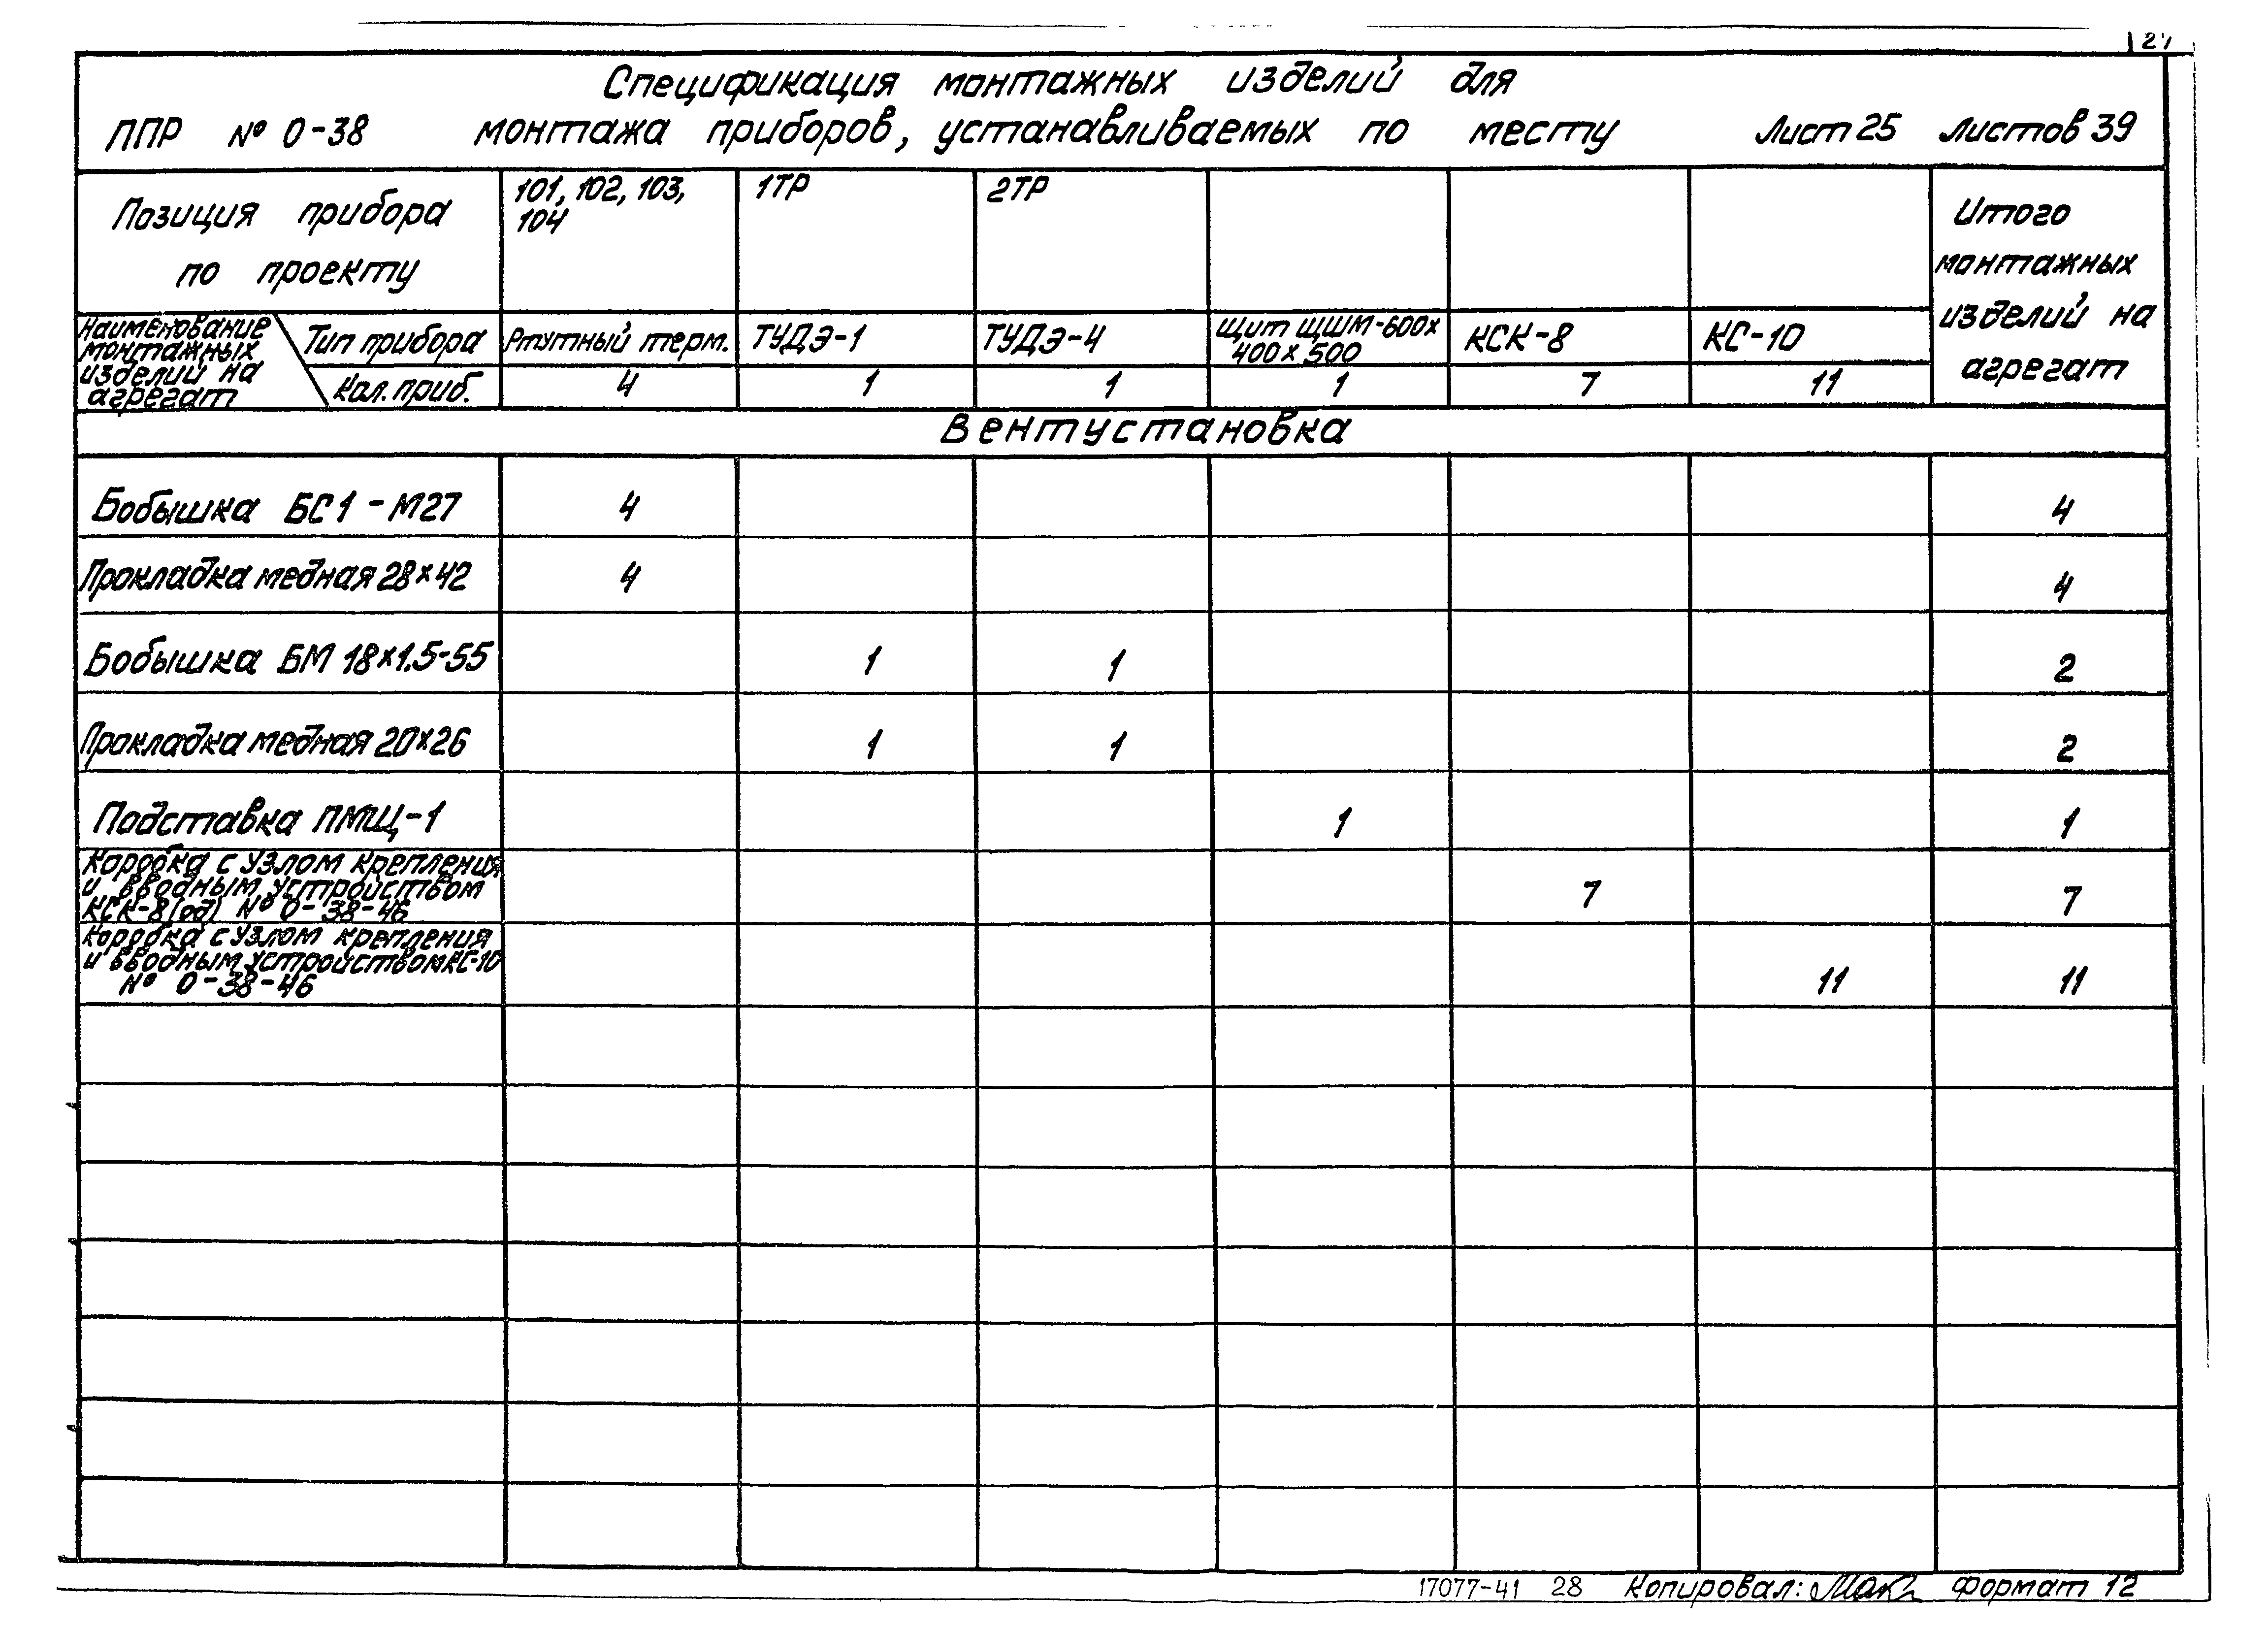 Спецификация монтажных изделий для
ППР № 0-38 монтажа приборов, устанавливаемых по месту Лист 25 листов 39
Позиция прибора
по проекту
101, 102, 103,
104
1ТР
2ТР
Итого
монтажных
изделий на
агрегат
Наименование
монтажных
изделий на
агрегат
Тип прибора
Ртутный терм.
ТУДЭ-1
ТУДЭ-4
Щит ЩШМ-600х
400х500
КСК-8
КС-10
Кол. приб.
4
1
1
1
7
11
Вентустановка
Бобышка БС1-М27 4 4
Прокладка медная 28х42 4 4
Бобышка БМ 18х1.5-55 1 1 2
Прокладка медная 20х26 1 1 2
Подставка ПМЩ-1 1 1
Коробка с узлом крепления
и вводным устройством
КСК-8(од) № 0-38-46
7 7
Коробка с узлом крепления
и вводным устройством КС-10
№ 0-38-46
11 11
17077-41 28 Копировал: формат 12